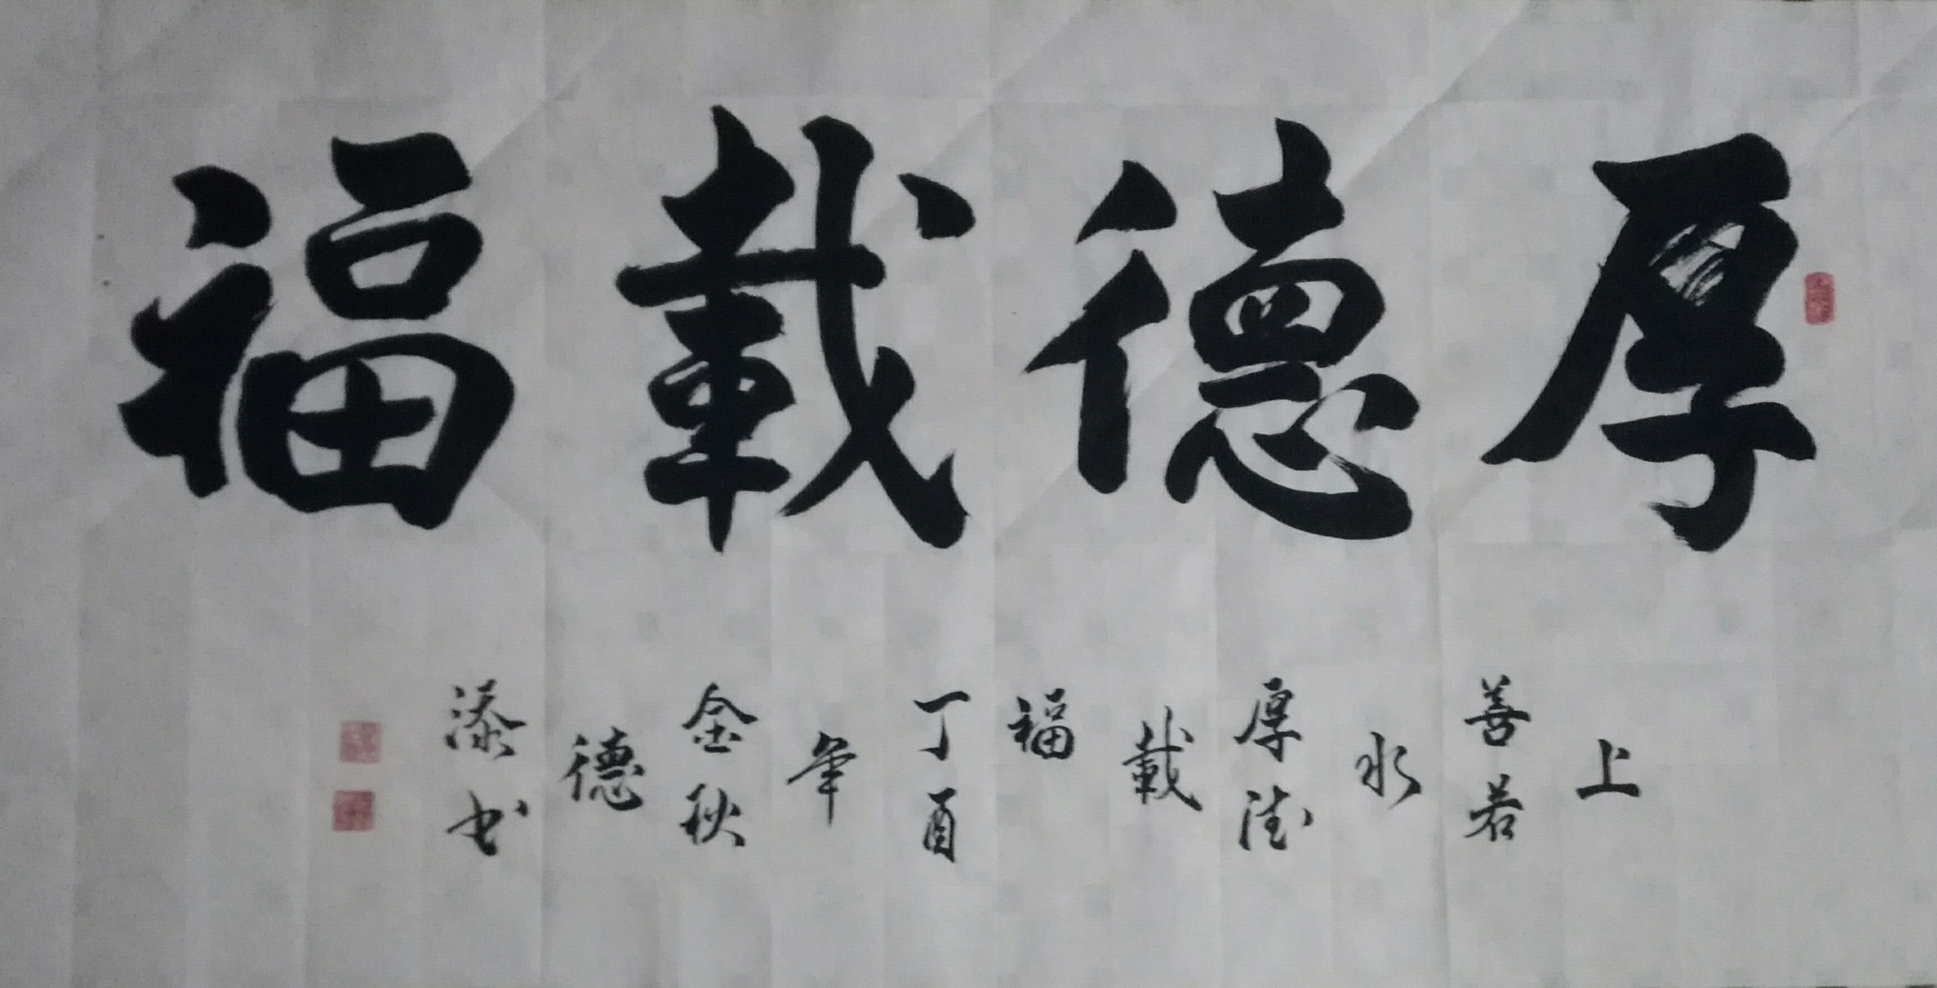 厚德載福
上善若水厚德載福丁酉年金秋德添书